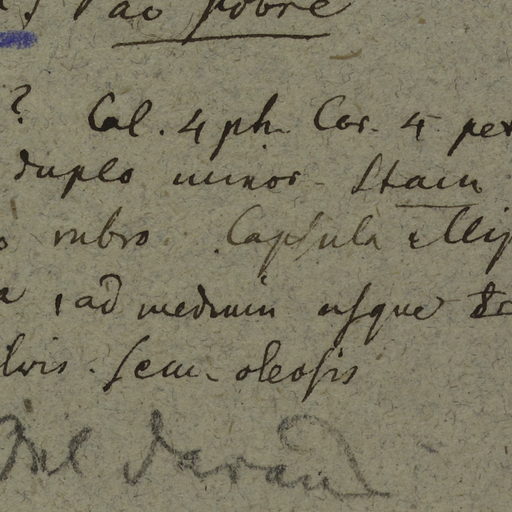 Pao Pobre
? Cal. 4 ph. Cor. 4 pet
duplo minor. Stam
o rubro. Capsula ellip
a, ad medium usque
lvis. Sem. oleosis